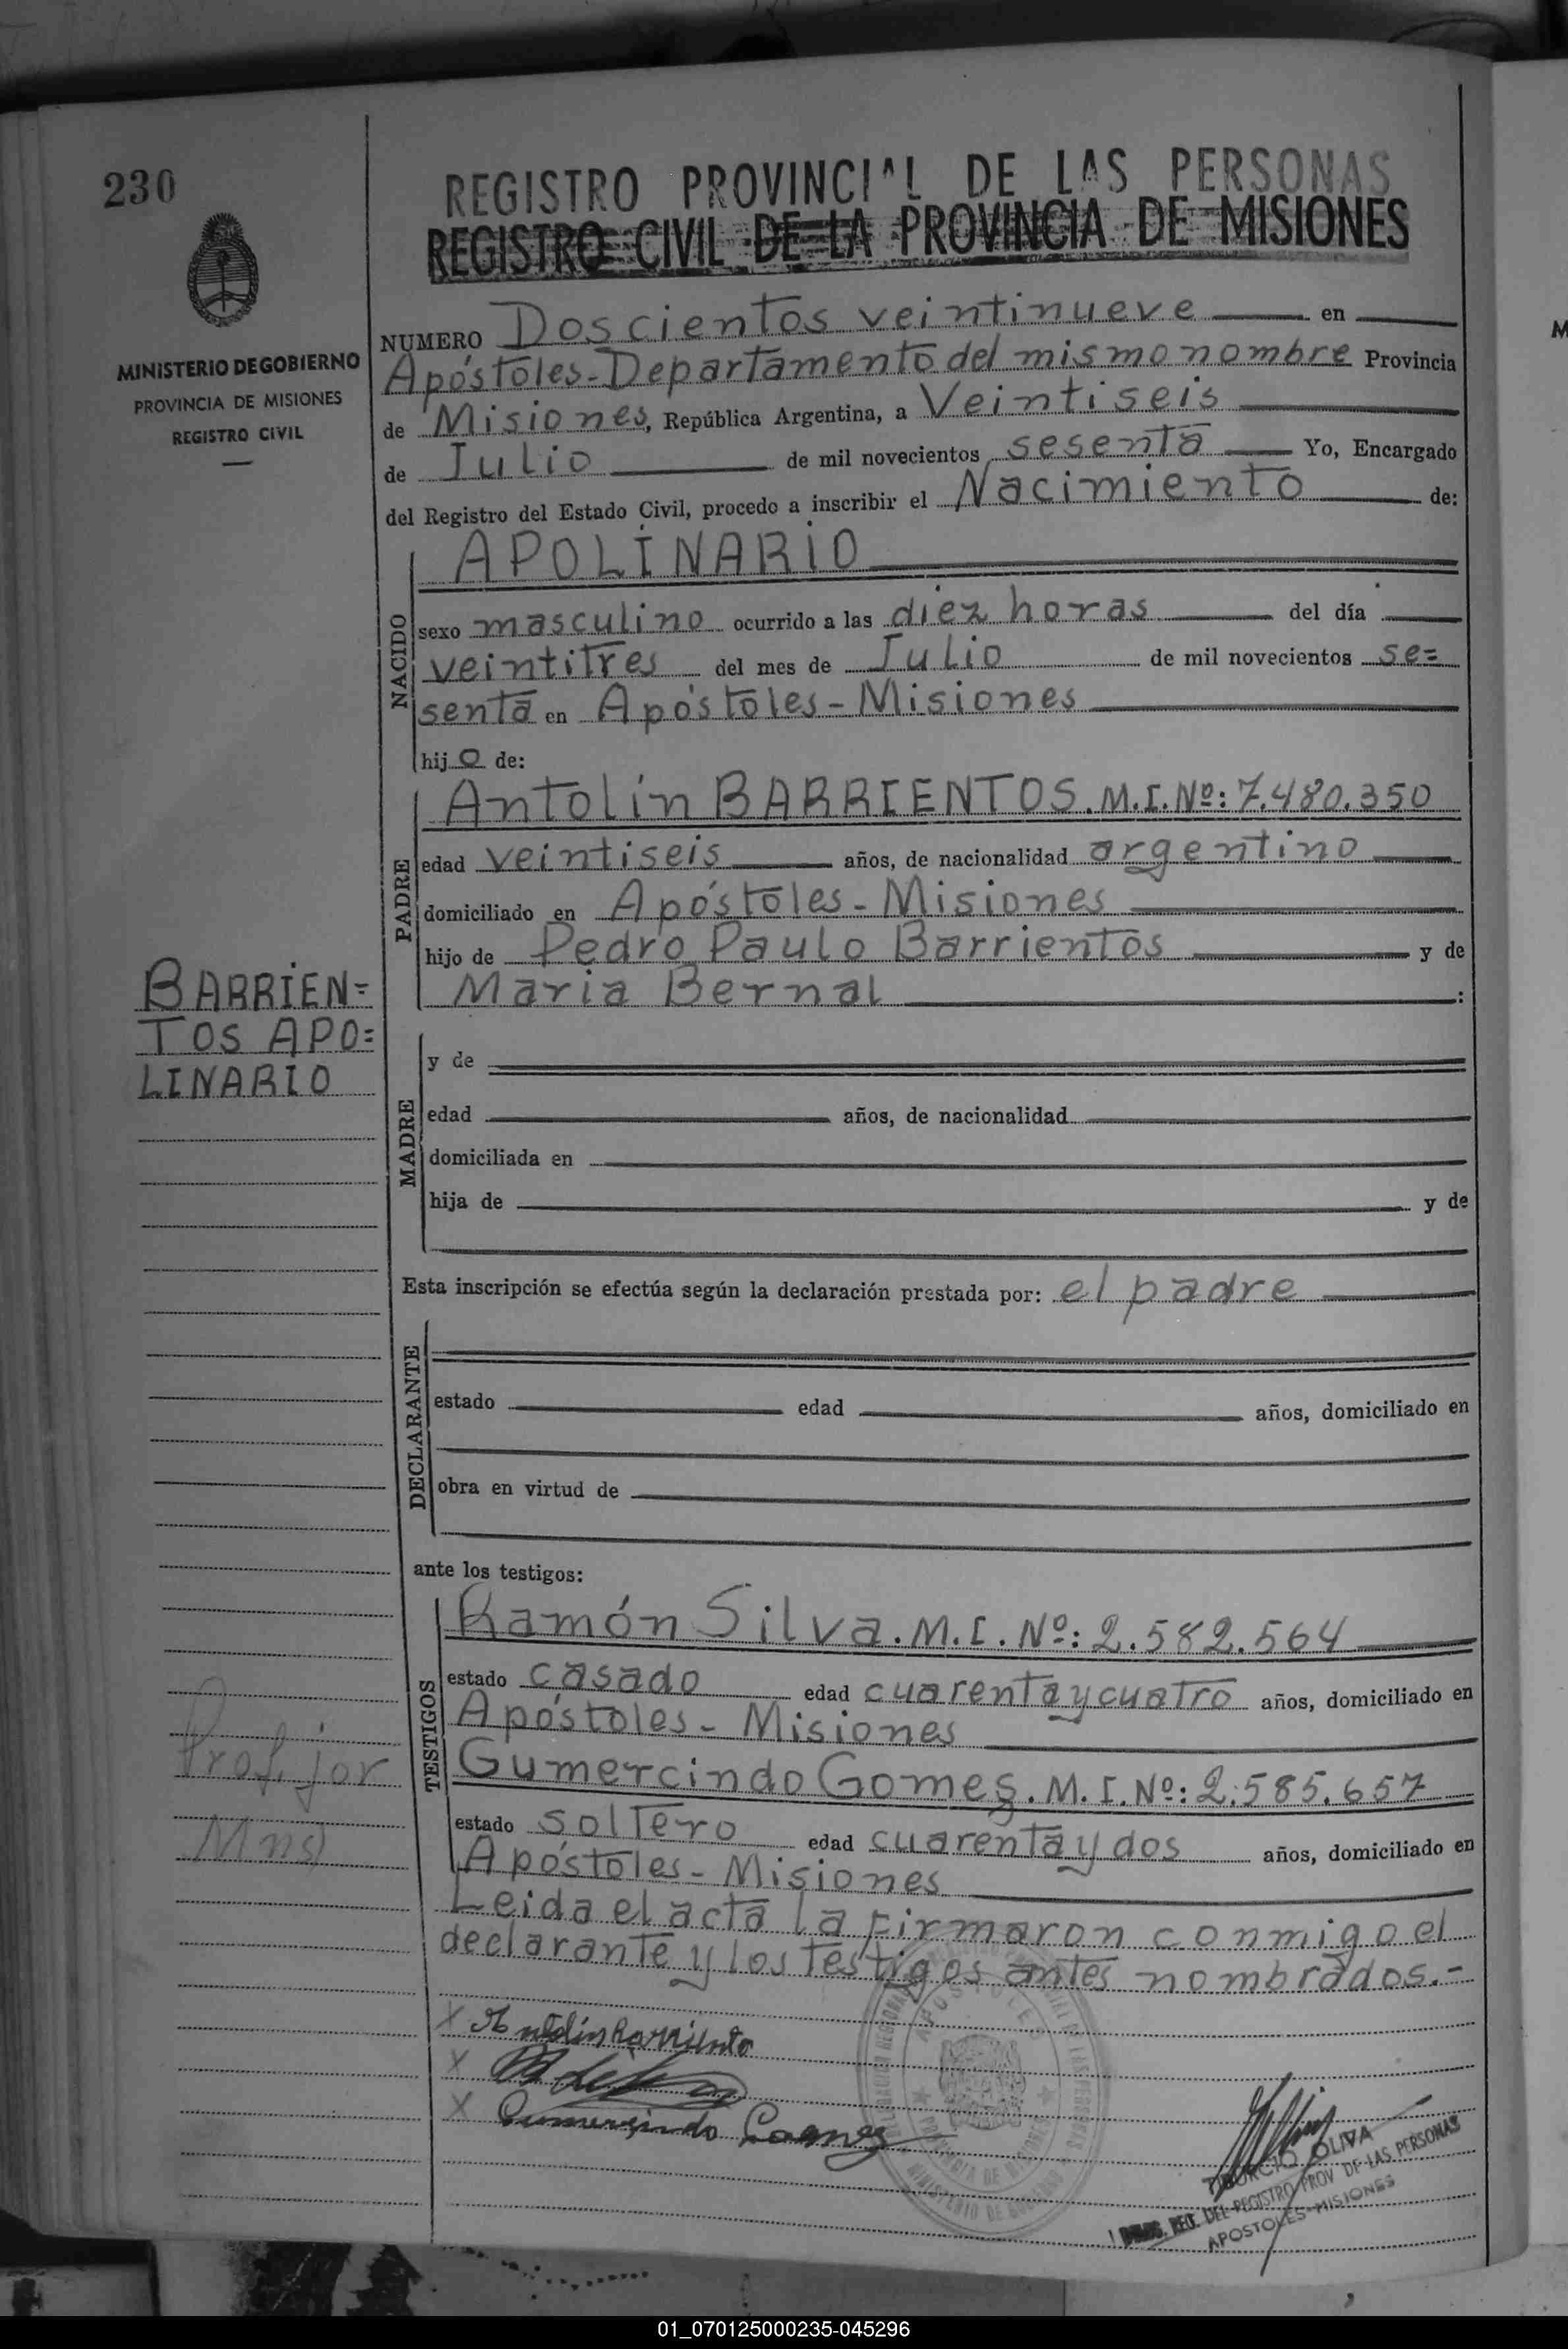 230
REGISTRO PROVINCIAL DE LAS PERSONAS
REGISTRO CIVIL DE LA PROVINCIA DE MISIONES
MINISTERIO DE GOBIERNO
PROVINCIA DE MISIONES
REGISTRO CIVIL
NUMERO Doscientos veintinueve en
Apóstoles-Departamento del mismo nombre Provincia
de Misiones, República Argentina, a Veintiseis
de Julio de mil novecientos sesenta Yo, Encargado
del Registro del Estado Civil, procedo a inscribir el Nacimiento de:
NACIDO
APOLINARIO
sexo masculino ocurrido a las diez horas del día
veintitres del mes de Julio de mil novecientos se=
senta en Apóstoles-Misiones
hijo de:
PADRE
Antolín BARRIENTOS. M.I. Nº: 7.480.350
edad veintiseis años, de nacionalidad argentino
domiciliado en Apóstoles-Misiones
hijo de Pedro Paulo Barrientos y de
Maria Bernal :
BARRIEN=
TOS APO=
LINARIO
MADRE
y de
edad años, de nacionalidad
domiciliada en
hija de y de
Esta inscripción se efectúa según la declaración prestada por: el padre
DECLARANTE
estado edad años, domiciliado en
obra en virtud de
ante los testigos:
TESTIGOS
Ramón Silva. M.I. Nº: 2.582.564
estado casado edad cuarenta y cuatro años, domiciliado en
Apóstoles-Misiones
Gumercindo Gomes. M.I. Nº: 2.585.657
estado soltero edad cuarenta y dos años, domiciliado en
Apóstoles-Misiones
Leida el acta la firmaron conmigo el
declarante y los testigos antes nombrados.-
X Antolin Barriento
X
X Gumercindo Gomes
APOSTOLES
PROVINCIA DE MISIONES
MINISTERIO DE GOBIERNO
TIBURCIO OLIVA
REG. DEL REGISTRO PROV DE LAS PERSONAS
APOSTOLES-MISIONES
01_070125000235-045296